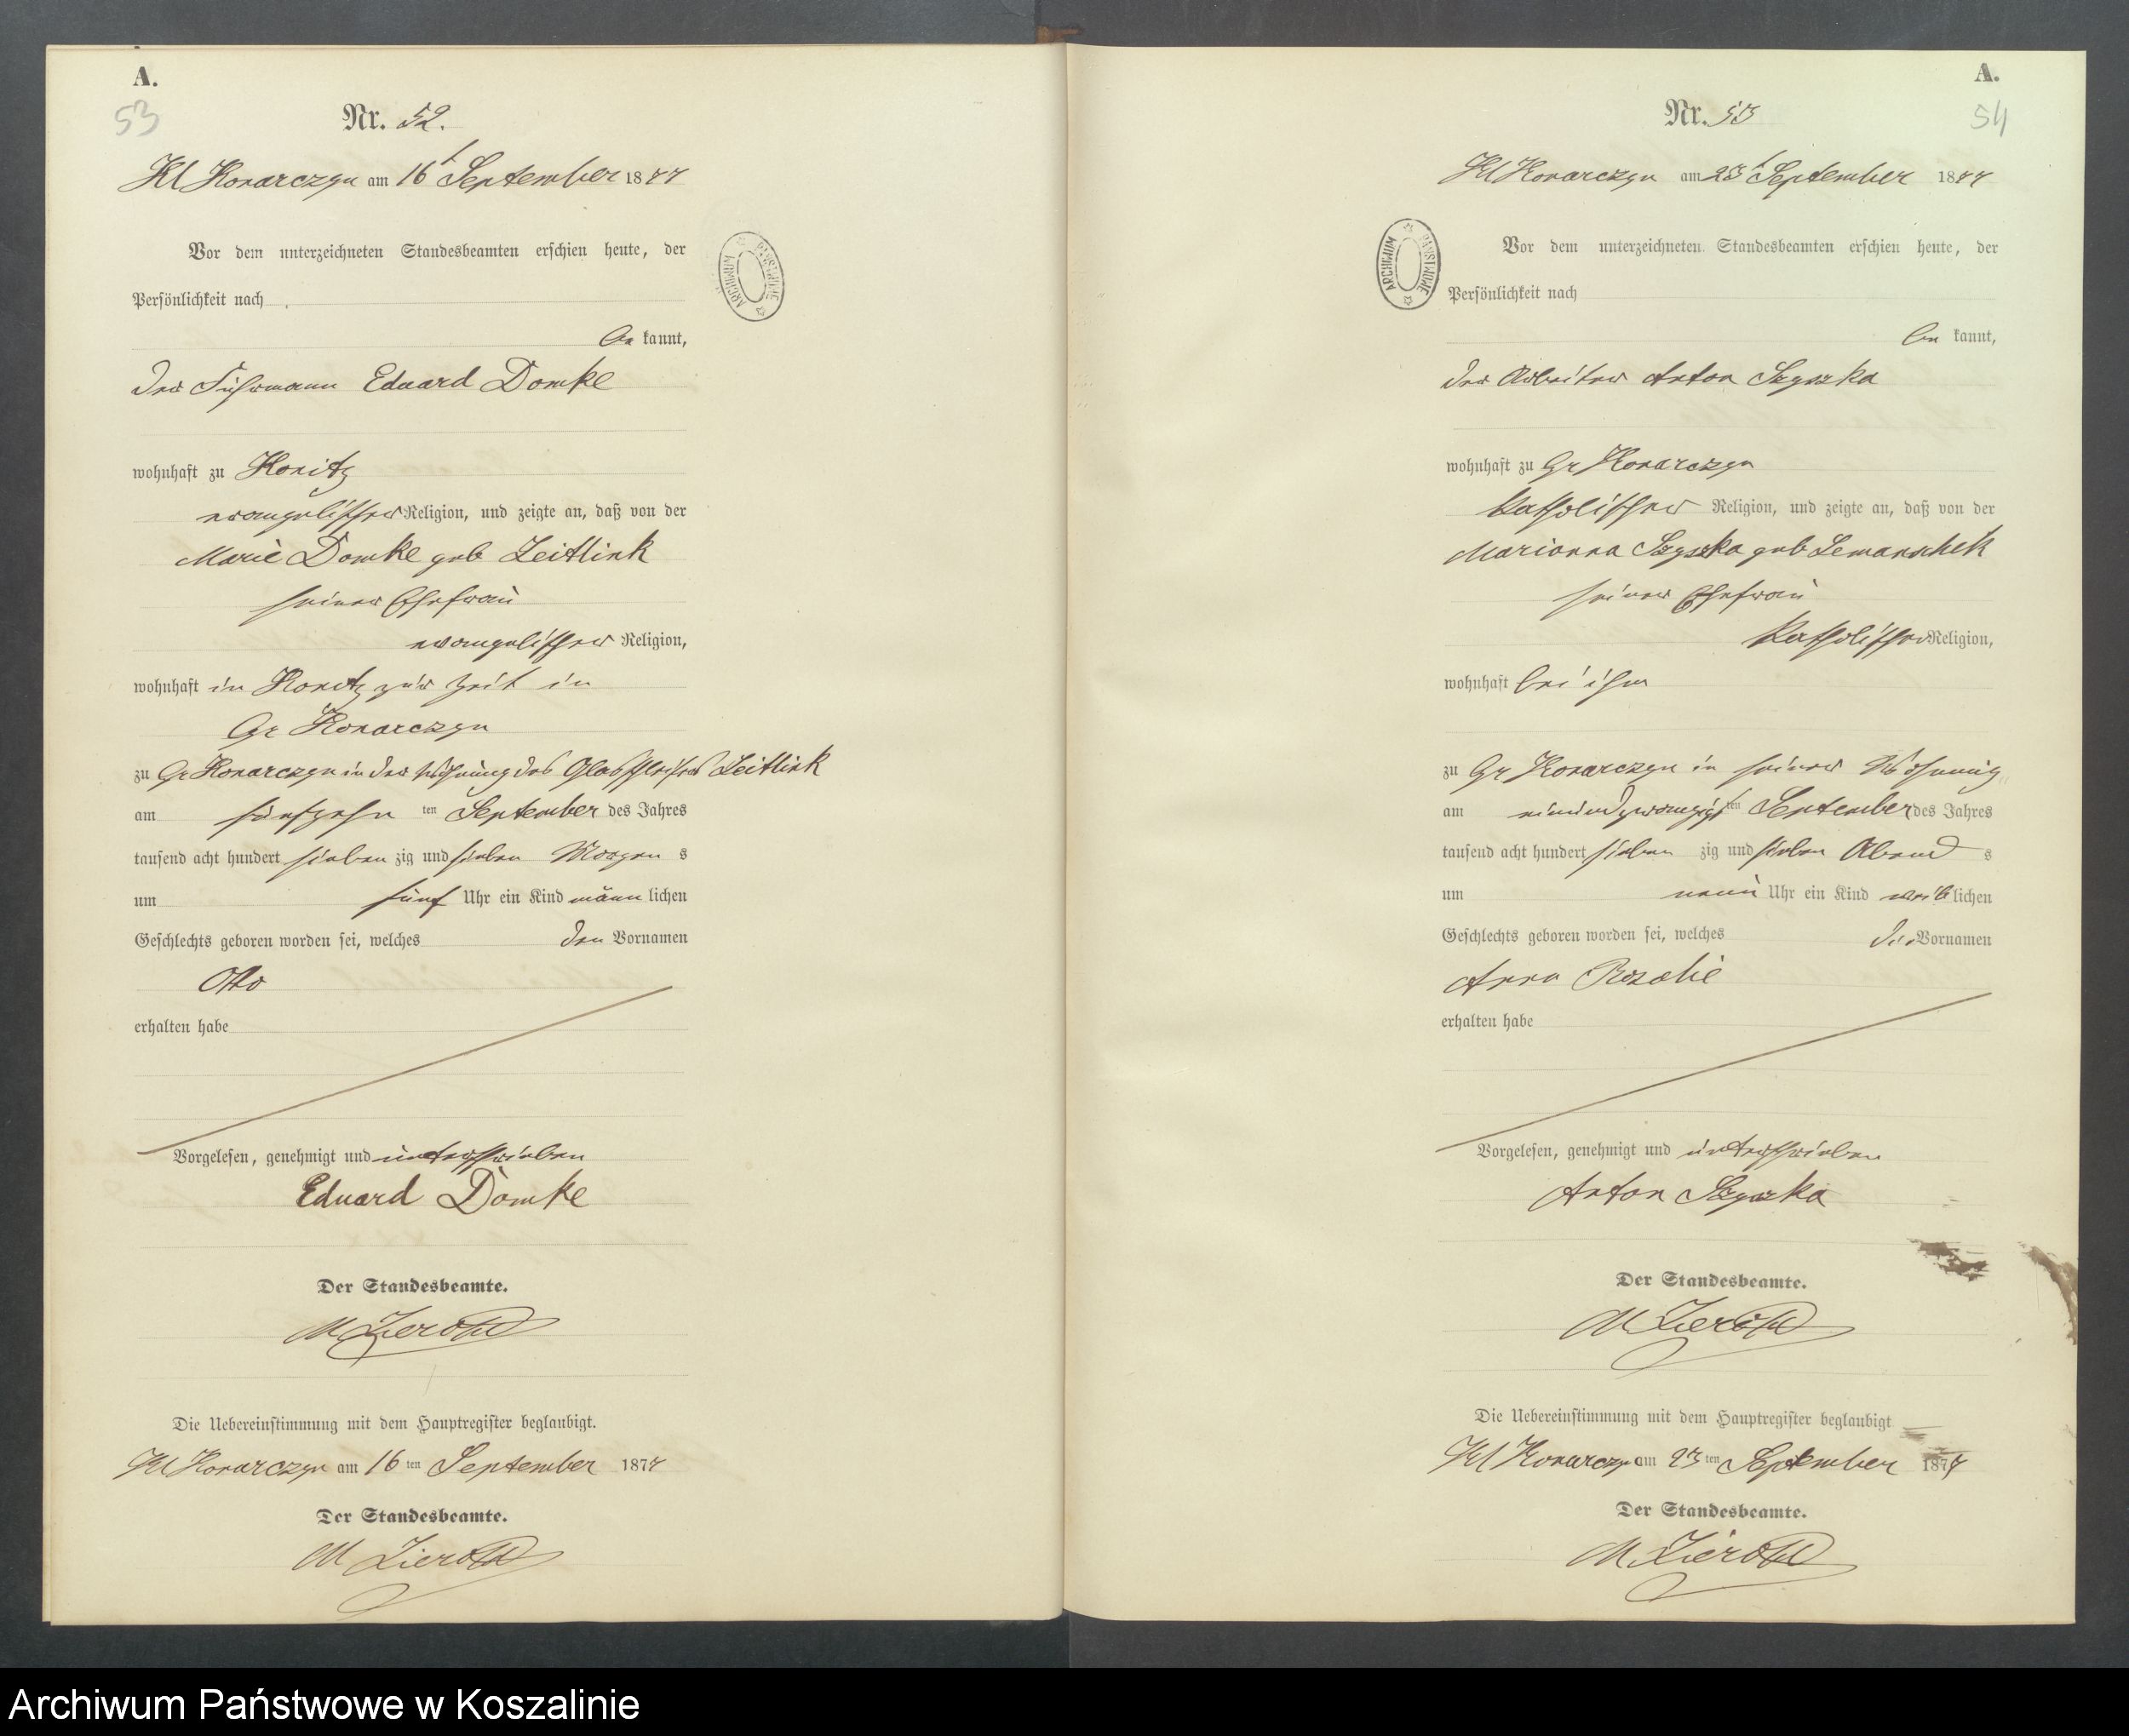 A.
53
Nr. 52.
Kl Konarczyn am 16t September 1877
Vor dem unterzeichneten Standesbeamten erschien heute, der
Persönlichkeit nach
be kannt,
der Fuhrmann Eduard Domke
wohnhaft zu Konitz
evangelischer Religion, und zeigte an, daß von der
Marie Domke geb Zeitlink
seiner Ehefrau
evangelischer Religion,
wohnhaft in Konitz zur Zeit in
Gr Konarczyn
zu Gr Konarczyn in der Wohnung des Glasschleifers Zeitlink
am fünfzehn ten September des Jahres
tausend acht hundert sieben zig und sieben Morgen s
um fünf Uhr ein Kind männ lichen
Geschlechts geboren worden sei, welches den Vornamen
Otto
erhalten habe
Vorgelesen, genehmigt und unterschrieben
Eduard Domke
Der Standesbeamte.
M
Die Uebereinstimmung mit dem Hauptregister beglaubigt.
Kl Konarczyn am 16 ten September 1877
Der Standesbeamte.
M
ARCHIWUM PAŃSTWOWE
A.
54
Nr. 53
Kl Konarczyn am 23t September 1877
Vor dem unterzeichneten Standesbeamten erschien heute, der
Persönlichkeit nach
be kannt,
der Arbeiter Anton Szyszka
wohnhaft zu Gr Konarczyn
katholischer Religion, und zeigte an, daß von der
Marianna Szyszka geb Lemanschek
seiner Ehefrau
katholischer Religion,
wohnhaft bei ihm
zu Gr Konarczyn in seiner Wohnung
am einundzwanzigst ten September des Jahres
tausend acht hundert sieben zig und sieben Abend s
um neun Uhr ein Kind weib lichen
Geschlechts geboren worden sei, welches die Vornamen
Anna Rosalie
erhalten habe
Vorgelesen, genehmigt und unterschrieben
Anton Szyszka
Der Standesbeamte.
M
Die Uebereinstimmung mit dem Hauptregister beglaubigt
Kl Konarczyn am 23 ten September 1877
Der Standesbeamte.
M
ARCHIWUM PAŃSTWOWE
Archiwum Państwowe w Koszalinie